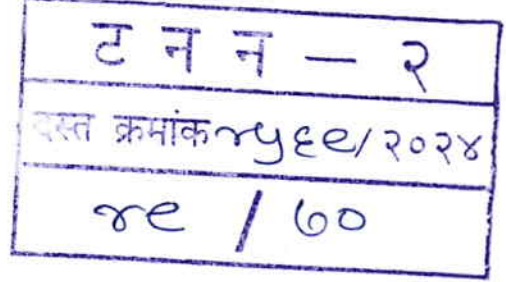 ट न न – २
दस्त क्रमांक ४५६९/२०२४
४९ / ७०